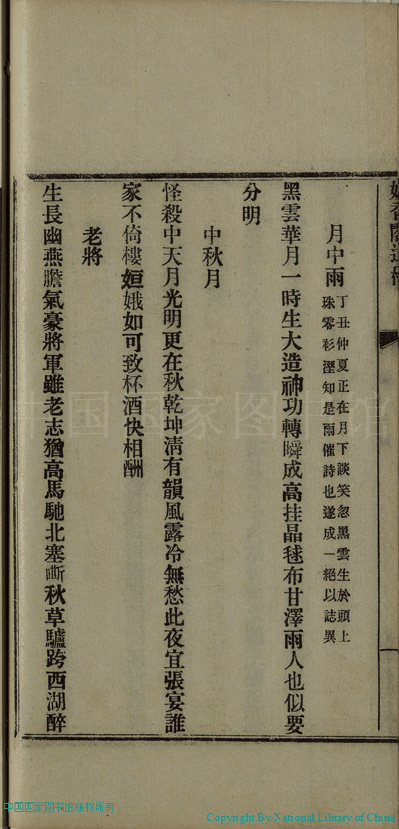 月中雨 丁丑仲夏正在月下談笑忽黑雲生於頭上
珠零衫溼知是雨催詩也遂成一絕以誌異
黑雲華月一時生大造神功轉瞬成高挂晶毬布甘澤雨人也似要
分明
中秋月
怪殺中天月光明更在秋乾坤淸有韻風露冷無愁此夜宜張宴誰
家不倚樓姮娥如可致杯酒快相酬
老將
生長幽燕膽氣豪將軍雖老志猶高馬馳北塞嘶秋草驢跨西湖醉
中国国家图书馆
中国国家图书馆版权所有
Copyright By National Library of China